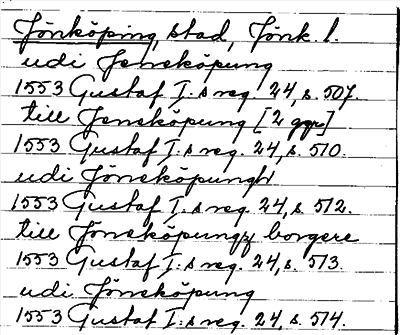 Jönköping, stad, Jönk. l.
udi Jeneköpung
1553 Gustaf I:s reg. 24, s. 507.
till Jeneköpung [2 ggr]
1553 Gustaf I:s reg. 24, s. 510.
udi Jöneköpungh
1553 Gustaf I:s reg. 24, s. 512.
till Jöneköpungz borgere
1553 Gustaf I:s reg. 24, s. 513.
udi Jöneköpung
1553 Gustaf I:s reg. 24, s. 514.